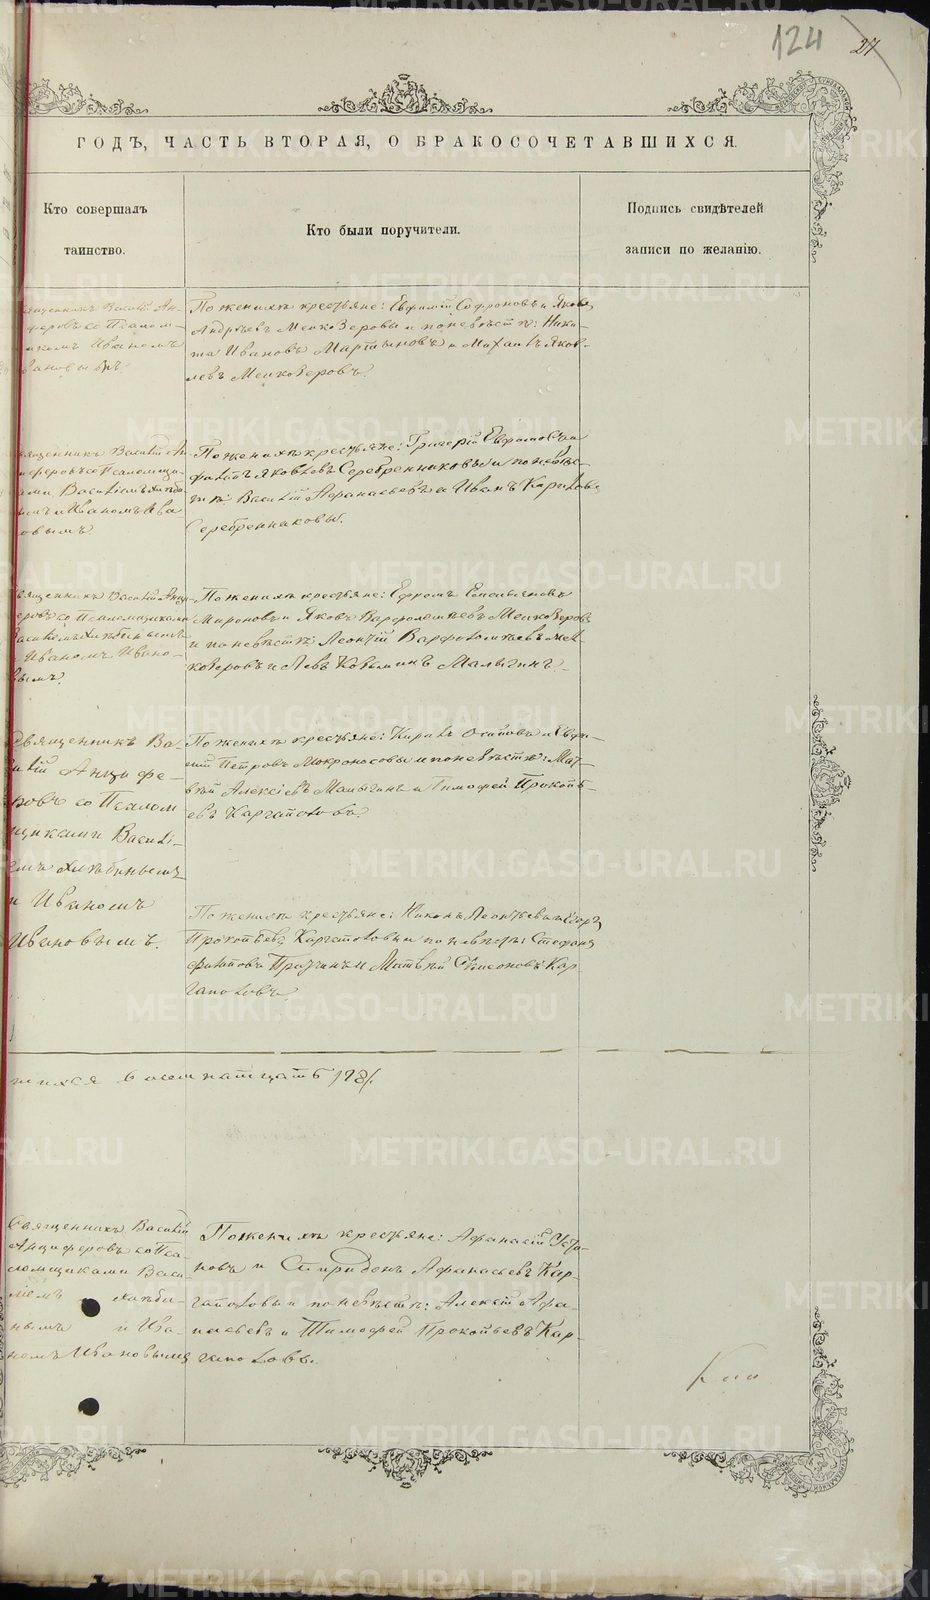 124
27
ГОДЪ, ЧАСТЬ ВТОРАЯ, О БРАКОСОЧЕТАВШИХСЯ.
Кто совершалъ
таинство.
Кто были поручители.
Подпись свидѣтелей
записи по желанію.
Священникъ Василій Ан-
феровъ со Псалом-
Иваномъ
По женихѣ крестьяне: Евфимій Софроновъ и Яковъ
Андреевъ Мелкозеровы и по невѣстѣ: Ники-
та Ивановъ Мартьяновъ и Михаилъ Яков-
левъ Мелкозеровъ.
Священникъ Василій Ан-
циферовъ со Псаломщи-
ками Василіемъ Хлѣби-
нымъ и Иваномъ Ива-
новымъ.
По женихѣ крестьяне: Григорій Ефимовъ и
Филипъ Яковлевъ Серебренниковы и по невѣс-
тѣ: Василій Афанасьевъ и Иванъ Карповъ
Серебренниковы.
Священникъ Василій Анци-
феровъ со Псаломщиками
Василіемъ Хлѣбинымъ
и Иваномъ Ивано-
вымъ.
По женихѣ крестьяне: Ефремъ Емельяновъ
Мироновъ и Яковъ Варфоломеевъ Мелкозеровъ
и по невѣстѣ: Леонтій Варфоломеевъ Мел-
козеровъ и Левъ Малыгинъ.
Священникъ Ва-
силій Анцифе-
ровъ со Псалом-
щиками Василі-
емъ Хлѣбинымъ
и Иваномъ
Ивановымъ.
По женихѣ крестьяне: Кирилъ Осиповъ и Евфи-
мій Петровъ Мокроносовы и по невѣстѣ: Мат-
вѣй Алексѣевъ Малыгинъ и Тимофей Прокопь-
евъ Каргаполовъ.
По женихѣ крестьяне: Никонъ Леонтьевъ и Егоръ
Прокопьевъ Каргаполовы и по невѣстѣ: Стефанъ
Филиповъ и Матвѣй Каргаполовъ.
шихся восемнатцать /18/.
Священникъ Василій
Анциферовъ со Пса-
ломщиками Васи-
ліемъ Хлѣби-
нымъ и Ива-
номъ Ивановымъ
По женихѣ крестьяне: Афанасій
и Спиридонъ Афанасьевъ Кар-
гаполовы и по невѣстѣ: Алексѣй Афа-
насьевъ и Тимофей Прокопьевъ Кар-
гаполовы.
METRIKI.GASO-URAL.RU